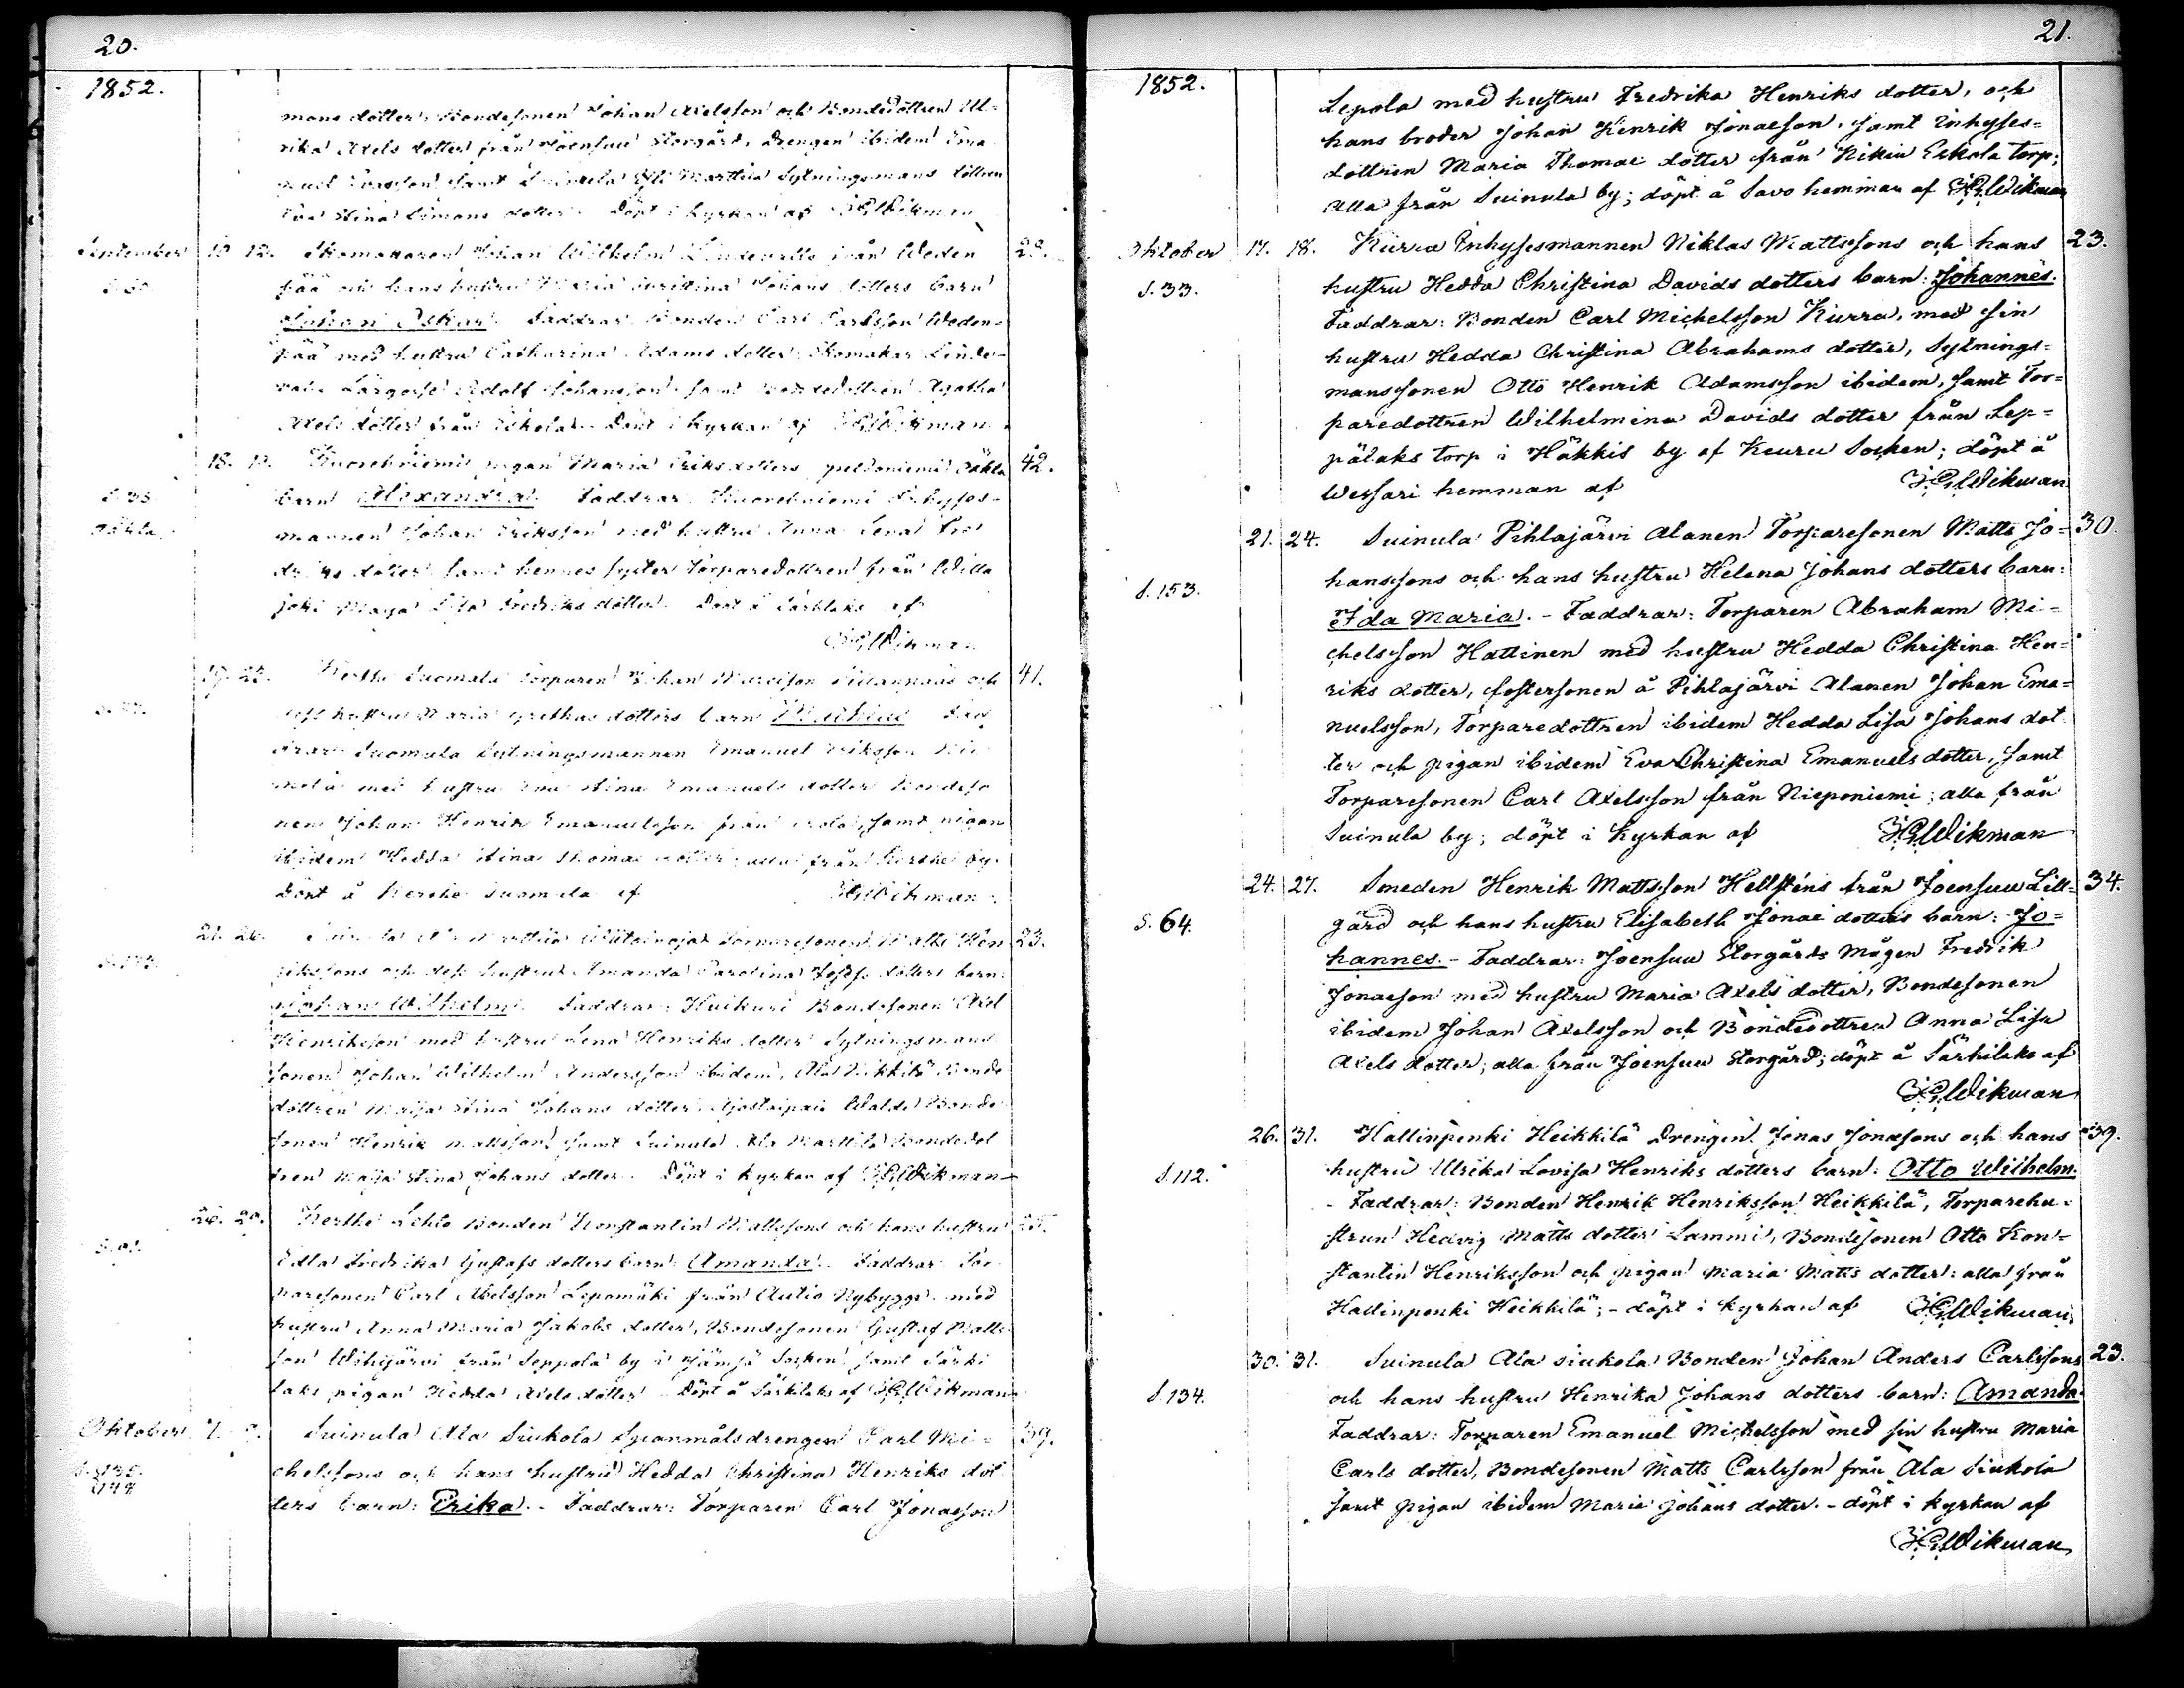 20.
1852.
mans dotter, Bondesonen Johan Axelsson och Bondedottren Ul=
rika Axels dotter från Joensuu Storgård, Drengen ibidem Ema
nuel samt Marttila Sytningsmans dottren
Eva Stina Simons dotter. Döpt i kyrkan af Wikman
September 12. Skomakaren Johan Wilhelm från Weden
pää och hans hustru Maria Christina Johans dotters barn
Johan Oskar. Faddrar: Bonden Carl Carlsson Weden=
pää med hustru Catharina Adams dotter, Skomakar Linde=
Adolf Johansson, samt Bondedottren Agatha
Axels dotter från Eskola. Döpt i kyrkan af Wikman
18. 19. Kuorehniemi pigan Maria Eriks dotters oäkta 42.
barn Alexandra. Faddrar: Kuorehniemi Inhyses=
oäkta
mannen Johan Eriksson med hustru Anna Lena Fre
driks dotter samt hennes syster Torparedottren från Willa
joki Maja Lisa Fredriks dotter. Döpt å Särkilaks af
Wikman
19. Kerthe Suomala Torparen Johan och 41.
dess hustru Maria Grethas dotters barn Fad
drar: Suomala Sytningsmannen Emanuel Eriksson
med hustru Eva Stina Emanuels dotter, Bondeso
nen Johan Henrik Emanuelsson från samt pigan
ibidem Hedda Stina Thomae dotter; alla från Kerthe by.
Döpt å Kerthe Suomala af Wikman
21. 26. Torparesonen Matts Hen 23.
rikssons och dess hustru Amanda Carolina Josefs dotters barn:
Johan Wilhelm. Faddrar: Huikuri Bondesonen Axel
Henriksson med hustru Lena Henriks dotter, Sytningsmans
sonen Johan Wilhelm Andersson ibidem, Ala Bonde
dottren Maija Stina Johans dotter, Bonde
sonen Henrik Mattsson, samt Suinula Ala Marttila Bondedot
tren Maija Stina Johans dotter. Döpt i kyrkan af Wikman
26. 29. Kerthe Lehto Bonden Konstantin Mattssons och hans hustru
Edla Fredrika Gustafs dotters barn: Amanda. Faddrar: Tor
paresonen Carl Abelsson Lepomäki från Autio Nybygge med
hustru Anna Maria Jakobs dotter, Bondesonen Gustaf Matts
son Wihijärvi från Seppola by i Jämsä Socken, samt Särki
laks pigan Hedda Axels dotter. Döpt å Särkilaks af Wikman
Oktober Suinula Ala Siukola Spanmålsdrengen Carl Mi= 39.
chelssons och hans hustru Hedda Christina Henriks dot
ters barn: Erika. - Faddrar: Torparen Carl Jonasson
21.
1852.
Lepola med hustru Fredrika Henriks dotter, och
hans broder Johan Henrik Jonaeson, samt Inhyses=
dottren Maria Thomae dotter från Eskola torp;
alla från Suinula by; döpt å Savo hemman af Wikman
Oktober 17. 18. Kurra Inhysesmannen Niklas Mattssons och hans 23.
S. 33. hustru Hedda Christina Davids dotters barn: Johannes.
Faddrar: Bonden Carl Michelsson Kurra, med sin
hustru Hedda Christina Abrahams dotter, Sytnings=
manssonen Otto Henrik Adamsson ibidem, samt Tor=
paredottren Wilhelmina Davids dotter från Lep=
pälaks torp i Häkkis by af Keuru Socken; döpt å
Wessari hemman af Wikman
21. 24. Suinula Pihlajärvi Alanen Torparesonen Matts Jo= 30.
S. 153. hanssons och hans hustru Helena Johans dotters barn:
Ida Maria. - Faddrar: Torparen Abraham Mi=
chelsson Hattinen med hustru Hedda Christina Hen=
riks dotter, fostersonen å Pihlajärvi Alanen Johan Ema=
nuelsson, Torparedottren ibidem Hedda Lisa Johans dot
ter och pigan ibidem Eva Christina Emanuels dotter, samt
Torparesonen Carl Axelsson från Nieponiemi; alla från
Suinula by; döpt i Kyrkan af Wikman
24. 27. Smeden Henrik Mattsson Hellsténs från Joensuu Lill= 34.
S. 64. gård och hans hustru Elisabeth Jonae dotters barn: Jo=
hannes. - Faddrar: Joensuu Storgårds Mågen Fredrik
Jonaeson med hustru Maria Axels dotter, Bondesonen
ibidem Johan Axelsson och Bondedottren Anna Lisa
Axels dotter; alla från Joensuu Storgård; döpt å Särkilaks af
Wikman
26. 31. Hallinpenki Heikkilä Drengen Jonas Jonaesons och hans 39.
S. 112. hustru Ulrika Lovisa Henriks dotters barn: Otto Wilhelm.
- Faddrar: Bonden Henrik Henriksson Heikkilä, Torparehu=
strun Hedvig Matts dotter Lammi, Bondesonen Otto Kon=
stantin Henriksson och pigan Maria Matts dotter: alla från
Hallinpenki Heikkilä; - döpt i kyrkan af Wikman
30. 31. Suinula Ala Siukola Bonden Johan Anders Carlssons 23.
S. 134. och hans hustru Henrika Johans dotters barn: Amanda.
Faddrar: Torparen Emanuel Michelsson med sin hustru Maria
Carls dotter, Bondesonen Matts Carlsson från Ala Siukola
samt pigan ibidem Maria Johans dotter. - döpt i kyrkan af
Wikman